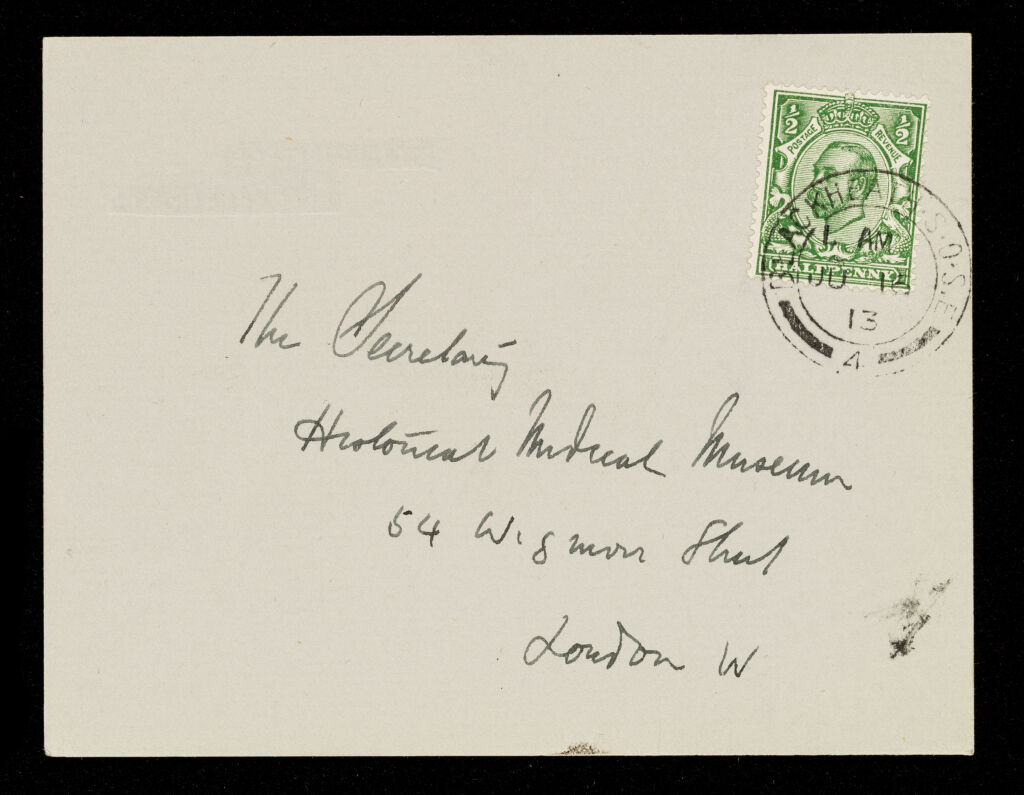 ½ ½
POSTAGE REVENUE
HALFPENNY
BLACKHEATH. S.O. S.E.
AM
13
4
The Secretary
Historical Medical Museum
54 Wigmore Street
London W